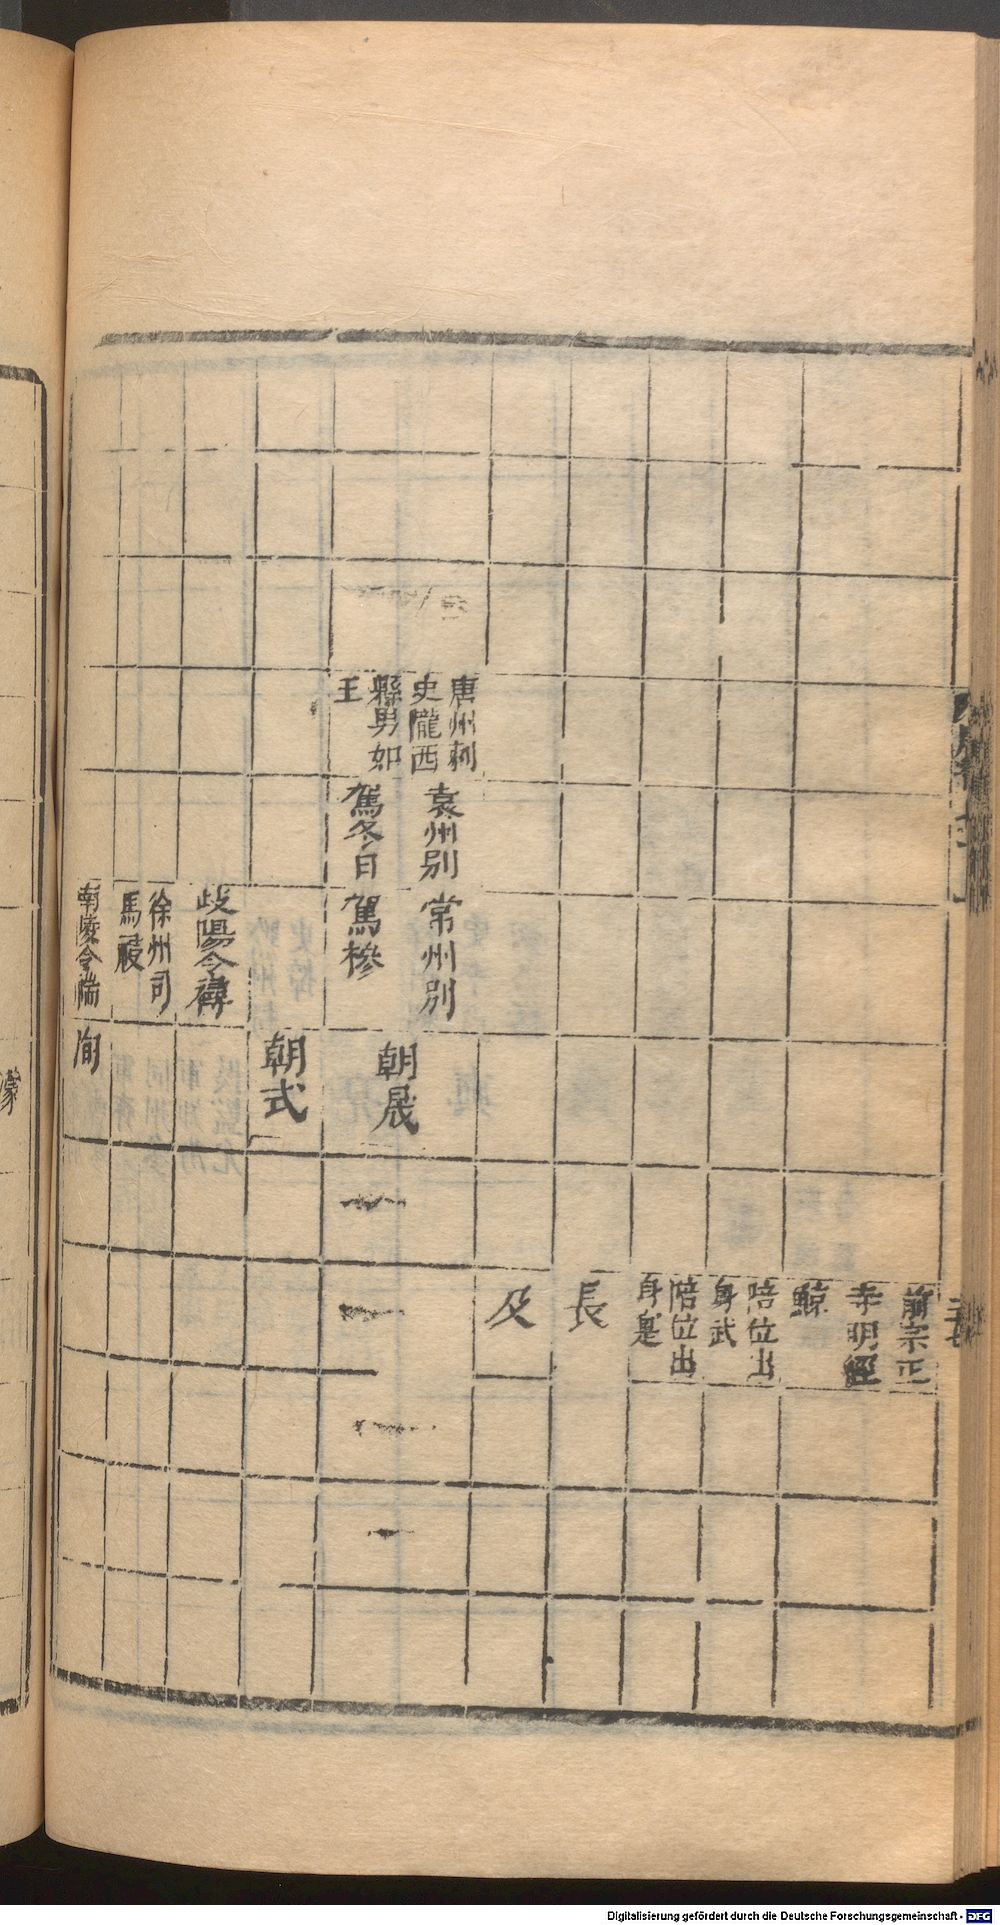 前宗正
寺明經
鯨
陪位出
身武
陪位出
身㲋
長
及
唐州刺
史隴西
縣男如
王
袁州別
駕冬日
常州別
駕槮
朝晟
朝式
歧陽令褘
徐州司
馬祾
南陵令㡭
洵
濛
Digitalisierung gefördert durch die Deutsche Forschungsgemeinschaft - DFG